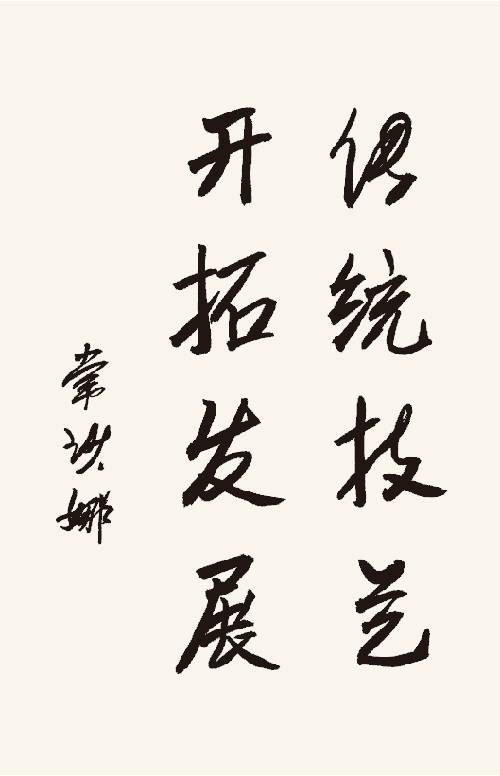 传统技艺
开拓发展
常沙娜